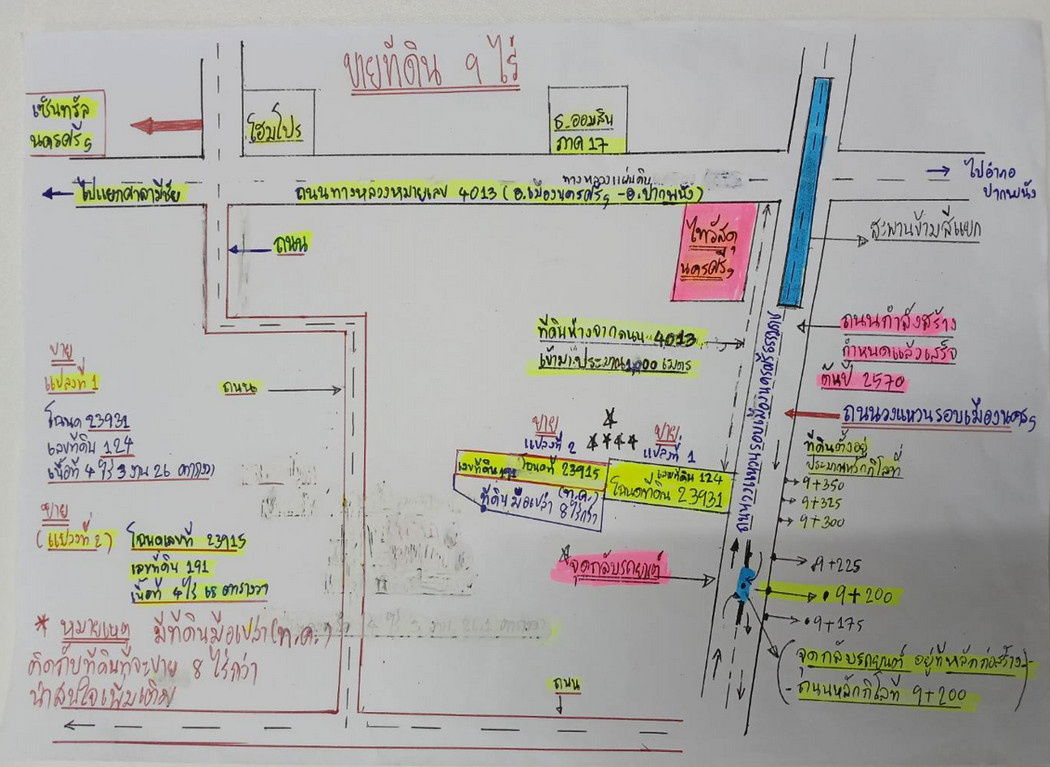 ขายที่ดิน 9 ไร่
เซ็นทรัล
นครศรีฯ
โฮมโปร
ธ.ออมสิน
ภาค 17
ทางหลวงแผ่นดิน
ไปแยกศาลามีชัย
ถนนทางหลวงหมายเลข 4013 (อ.เมืองนครศรีฯ -อ.ปากพนัง)
ไปอำเภอ
ปากพนัง
ถนน
ไทวัสดุ
นครศรีฯ
สะพานข้ามสี่แยก
ที่ดินห่างจากถนน 4013
เข้ามาประมาณ 1,000 เมตร
ถนนกำลังสร้าง
กำหนดแล้วเสร็จ
ต้นปี 2570
ถนนวงแหวนรอบเมืองนครฯ
ถนน
ขาย
แปลงที่ 1
โฉนด 23931
เลขที่ดิน 124
เนื้อที่ 4 ไร่ 3 งาน 26 ตารางวา
ขาย
แปลงที่ 2
ขาย
แปลงที่ 1
เลขที่ดิน 191
โฉนดที่ 23915
เลขที่ดิน 124
โฉนดที่ดิน 23931
ที่ดินมือเปล่า (ท.ค.) 8 ไร่กว่า
ที่ดินตั้งอยู่
ประมาณหลักกิโลที่
9+350
9+325
9+300
ขาย
(แปลงที่ 2)
โฉนดเลขที่ 23915
เลขที่ดิน 191
เนื้อที่ 4 ไร่ 68 ตารางวา
จุดกลับรถยนต์
9+225
9+200
9+175
* หมายเหตุ มีที่ดินมือเปล่า (ท.ค.)
ติดกับที่ดินที่จะขาย 8 ไร่กว่า
น่าสนใจเพิ่มเติม
(จุดกลับรถยนต์ อยู่ที่หลักก่อสร้าง-
-ถนนหลักกิโลที่ 9+200)
ถนน